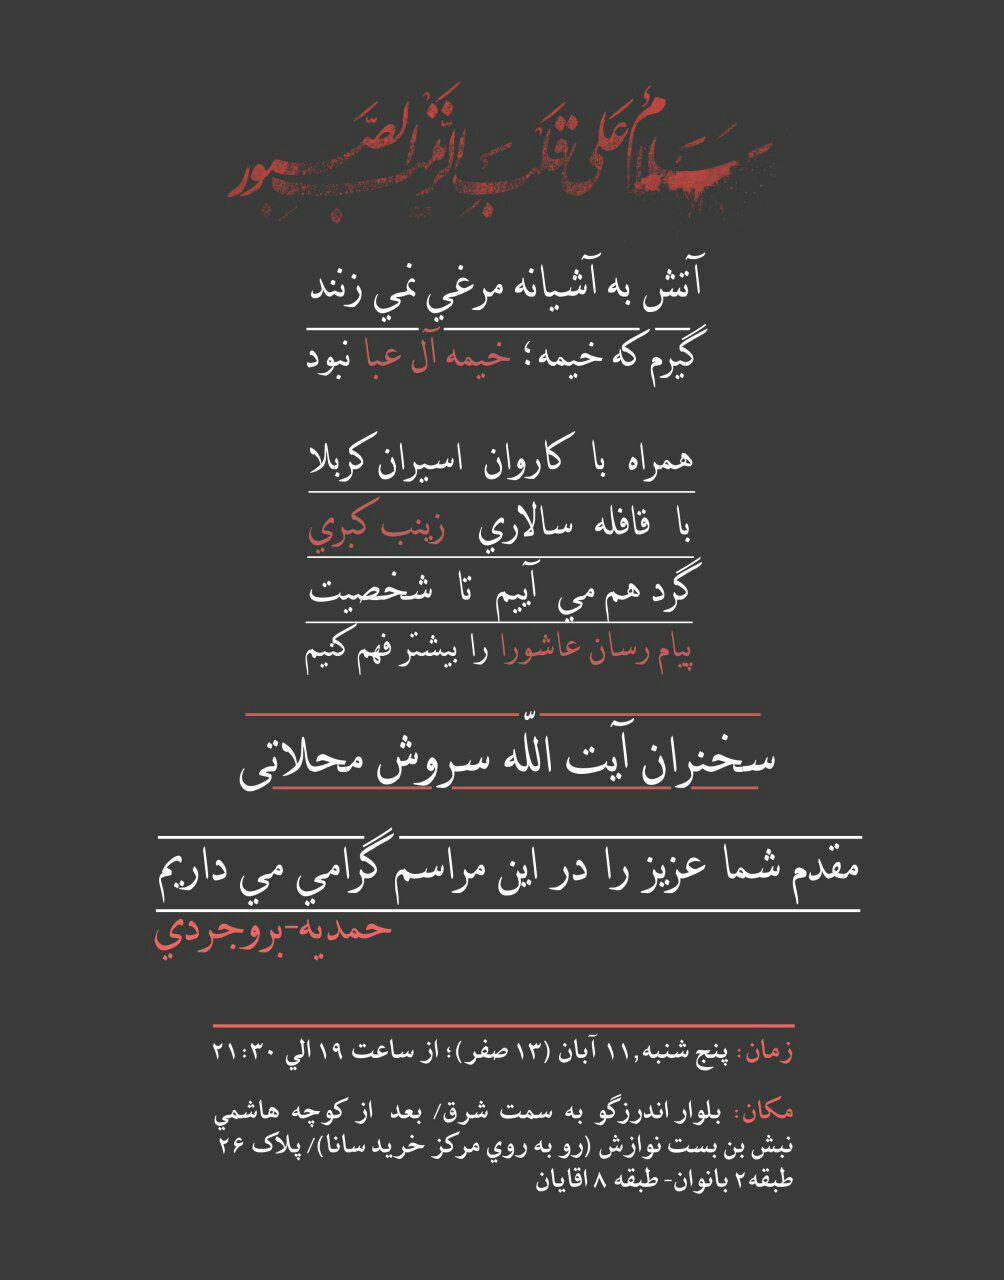 سَلامٌ عَلی قَلبِ الزَّینَبِ الصَّبور
آتش به آشيانه مرغي نمي زنند
گيرم كه خيمه؛ خيمه آل عبا نبود
همراه با كاروان اسيران كربلا
با قافله سالاري زينب كبري
گرد هم مي آييم تا شخصيت
پيام رسان عاشورا را بيشتر فهم كنيم
سخنران آیت اللّه سروش محلاتی
مقدم شما عزيز را در اين مراسم گرامي مي داريم
حمديه-بروجردي
زمان: پنج شنبه,۱۱ آبان (۱۳ صفر)؛ از ساعت ۱۹ الي ۲۱:۳۰
مكان: بلوار اندرزگو به سمت شرق/ بعد از كوچه هاشمي
نبش بن بست نوازش (رو به روي مركز خريد سانا)/ پلاک ۲۶
طبقه۲ بانوان- طبقه ۸ اقايان